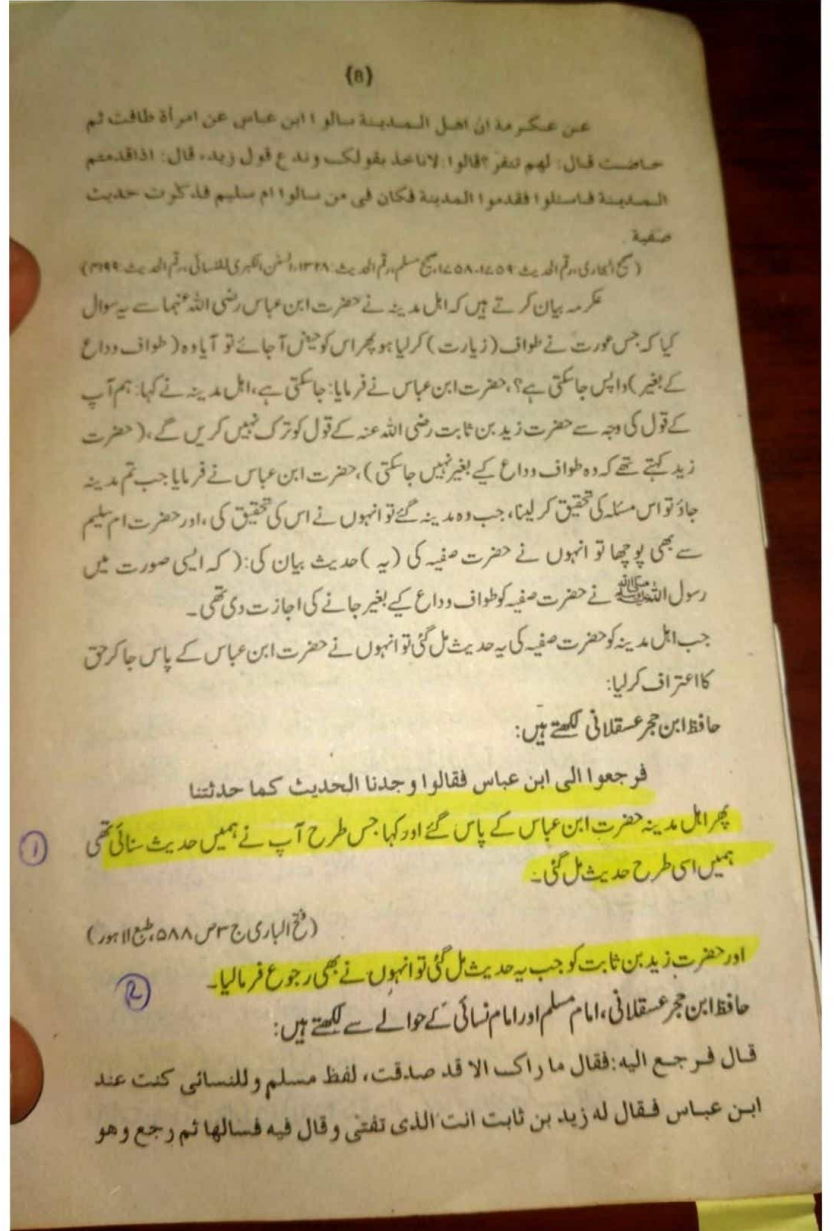 {8}
عن عكرمة ان اهل المدينة سالوا ابن عباس عن امرأة طافت ثم
حاضت قال: لهم تنفر؟ قالوا: لاناخذ بقولك وندع قول زيد، قال: اذاقدمتم
المدينة فاسئلوا فقدموا المدينة فكان فى من سالوا ام سليم فذكرت حديث
صفية
(صحیح البخاری، رقم الحدیث ۱۷۵۹۔۱۷۵۸، صحیح مسلم، رقم الحدیث: ۱۳۲۸، السنن الکبریٰ للنسائی، رقم الحدیث: ۴۱۹۹)
عکرمہ بیان کرتے ہیں کہ اہل مدینہ نے حضرت ابن عباس رضی اللہ عنہما سے یہ سوال
کیا کہ جس عورت نے طواف (زیارت) کرلیا ہو پھر اس کو حیض آجائے تو آیا وہ (طواف وداع
کے بغیر) واپس جاسکتی ہے؟، حضرت ابن عباس نے فرمایا: جاسکتی ہے، اہل مدینہ نے کہا: ہم آپ
کے قول کی وجہ سے حضرت زید بن ثابت رضی اللہ عنہ کے قول کو ترک نہیں کریں گے، (حضرت
زید کہتے تھے کہ وہ طواف وداع کیے بغیر نہیں جاسکتی)، حضرت ابن عباس نے فرمایا جب تم مدینہ
جاؤ تو اس مسئلہ کی تحقیق کر لینا، جب وہ مدینہ گئے تو انہوں نے اس کی تحقیق کی، اور حضرت ام سلیم
سے بھی پوچھا تو انہوں نے حضرت صفیہ کی (یہ) حدیث بیان کی: (کہ ایسی صورت میں
رسول اللہ ﷺ نے حضرت صفیہ کو طواف وداع کیے بغیر جانے کی اجازت دی تھی۔
جب اہل مدینہ کو حضرت صفیہ کی یہ حدیث مل گئی تو انہوں نے حضرت ابن عباس کے پاس جا کر حق
کا اعتراف کرلیا:
حافظ ابن حجر عسقلانی لکھتے ہیں:
فرجعوا الى ابن عباس فقالوا وجدنا الحديث كما حدثتنا
پھر اہل مدینہ حضرت ابن عباس کے پاس گئے اور کہا جس طرح آپ نے ہمیں حدیث سنائی تھی
1
ہمیں اسی طرح حدیث مل گئی۔
(فتح الباری ج ۳ ص ۵۸۸، طبع لاہور)
اور حضرت زید بن ثابت کو جب یہ حدیث مل گئی تو انہوں نے بھی رجوع فرمالیا۔
2
حافظ ابن حجر عسقلانی، امام مسلم اور امام نسائی کے حوالے سے لکھتے ہیں:
قال فرجع اليه: فقال ما راك الا قد صدقت، لفظ مسلم وللنسائى كنت عند
ابن عباس فقال له زيد بن ثابت انت الذى تفتى وقال فيه فسالها ثم رجع وهو